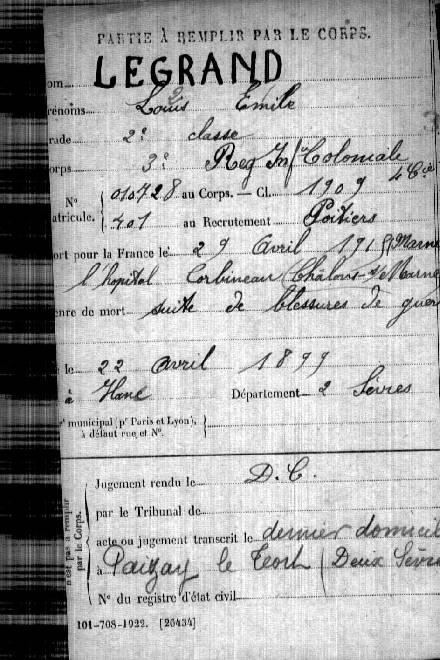 PARTIE À REMPLIR PAR LE CORPS.
om LEGRAND
rénoms Louis Emile
rade 2e classe
orps 3e Reg Inf Coloniale 4 Cie
N° 010728 au Corps. — Cl. 1909
atricule. 401 au Recrutement Poitiers
ort pour la France le 29 Avril 1918 (Marne
l'hopital Corbineau (Châlons-s/Marne
enre de mort suite de blessures de guer
le 22 avril 1899
à Département 2 Sèvres
municipal (pr Paris et Lyon),
à défaut rue et N°.
Jugement rendu le D.C.
par le Tribunal de
acte ou jugement transcrit le dernier domicil
à Paizay le Tort (Deux Sèvre
N° du registre d'état civil
n'est pas à remplir
par le Corps.
101-708-1922. [26434]